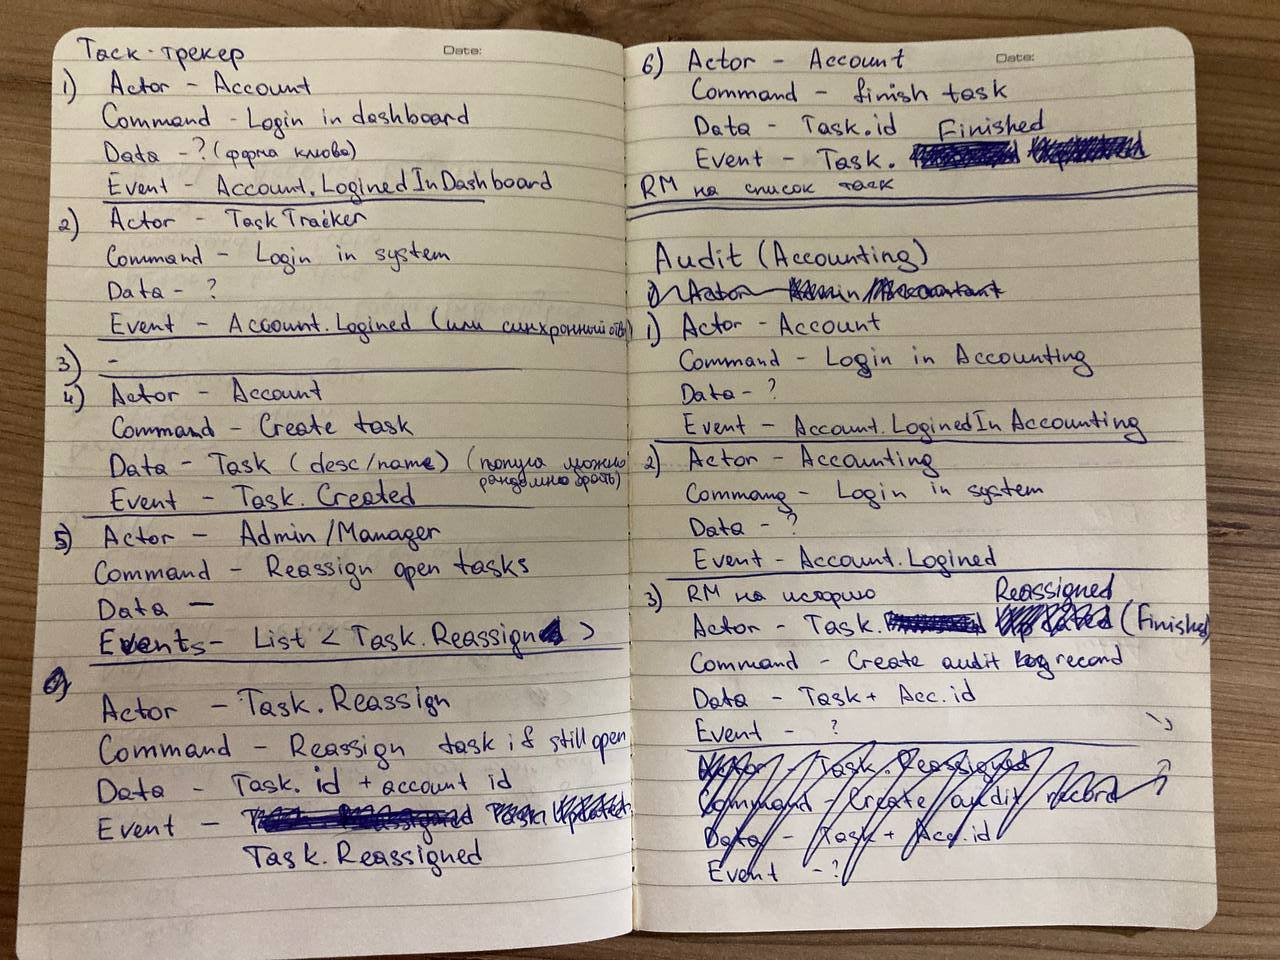 Таск-трекер
Date:
1) Actor - Account
Command - Login in dashboard
Data - ? (форма клюва)
Event - Account.LoginedInDashboard
2) Actor - Task Tracker
Command - Login in system
Data - ?
Event - Account.Logined (или синхронный отв)
3) -
4) Actor - Account
Command - Create task
Data - Task (desc/name) (попуга можно
рандомно брать)
Event - Task.Created
5) Actor - Admin/Manager
Command - Reassign open tasks
Data -
Events - List < Task.Reassign >
Actor - Task.Reassign
Command - Reassign task if still open
Data - Task.id + account id
Event - Task Updated
Task.Reassigned
Date:
6) Actor - Account
Command - finish task
Data - Task.id Finished
Event - Task.
RM на список таск
Audit (Accounting)
1) Actor - Admin/Accountant
1) Actor - Account
Command - Login in Accounting
Data - ?
Event - Account.LoginedIn Accounting
2) Actor - Accounting
Commang - Login in system
Data - ?
Event - Account.Logined
3) RM на историю Reassigned
Actor - Task. Updated (Finished)
Command - Create audit log record
Data - Task + Acc.id
Event - ?
Actor - Task.Reassigned
Command - Create audit record
Data - Task + Acc.id
Event - ?